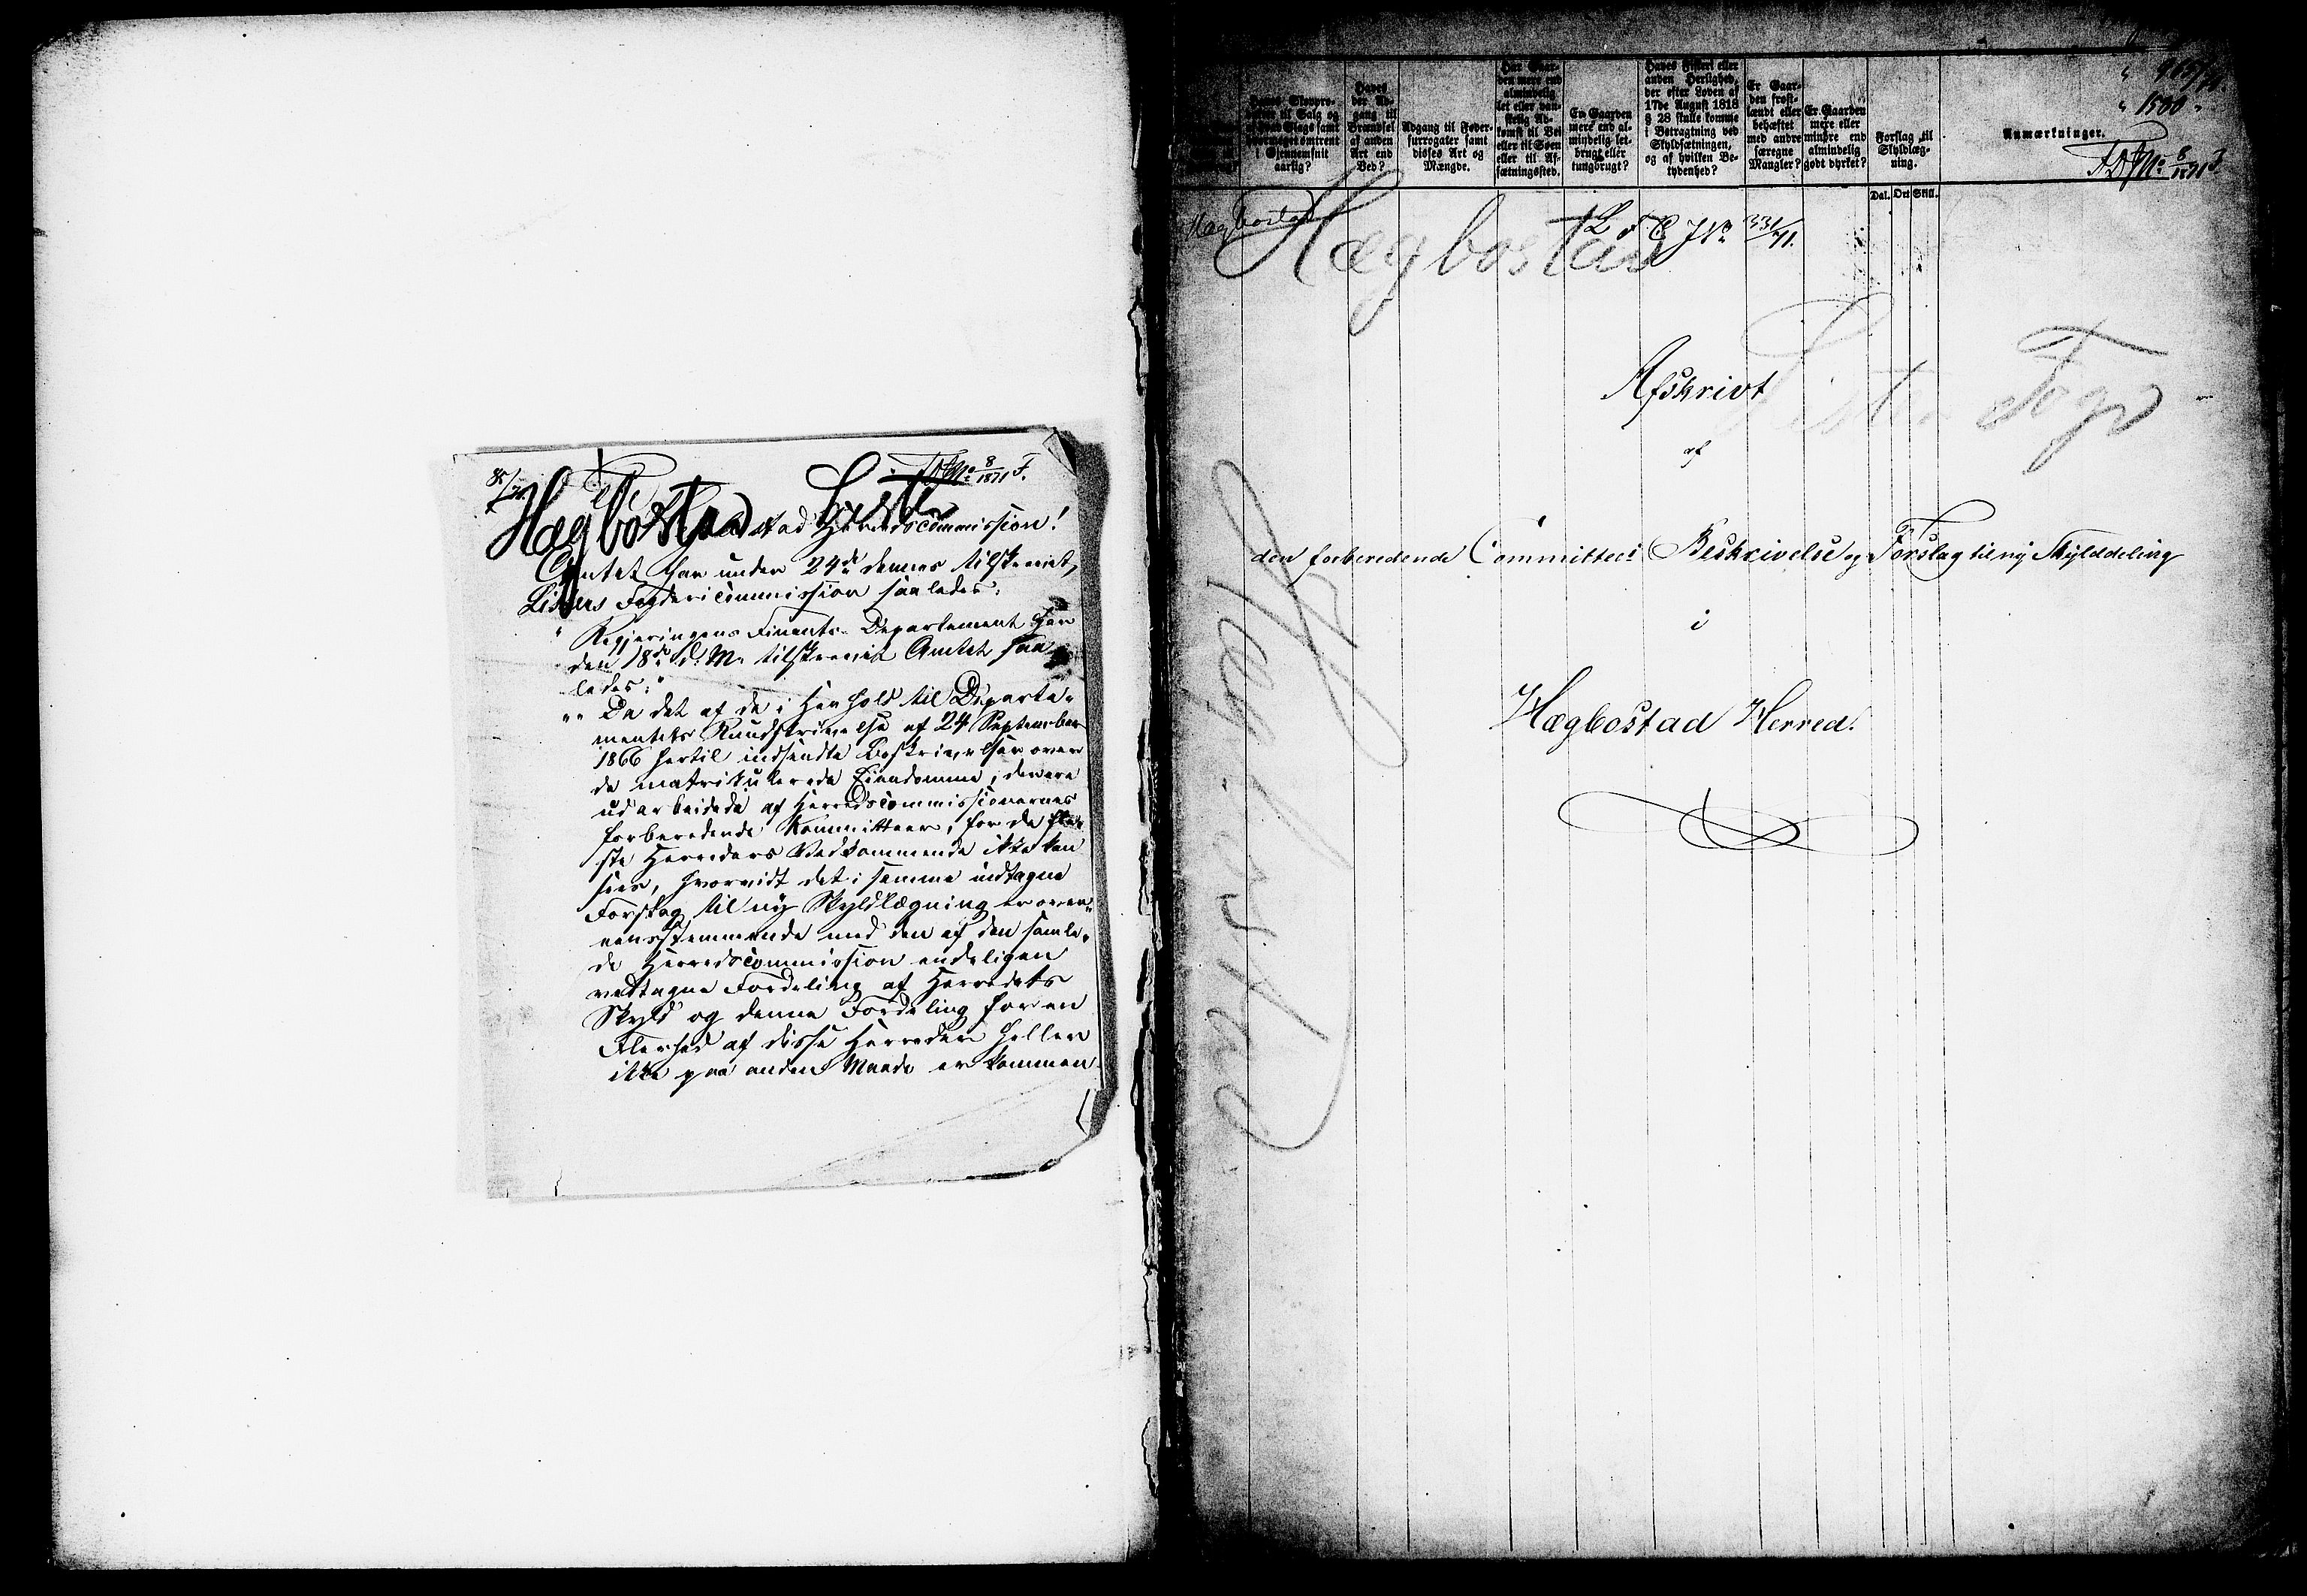 85/71.
F. D. No 8/1871 F.
Hægbostad Lister
Hægbostad Herredscommission!
Amtet har under 24de dennes tilskrevet
Listers Fogdericommission saaledes:
" Regjeringens Finants-Departement har
den 18de d. M. tilskrevet Amtet saa-
ledes:"
"" Da det af de i Henhold til Departe-
mentets Rundskrivelse af 24 September
1866 hertil indsendte Beskrivelser over
de matrikulerede Eiendomme, der ere
udarbeidede af Herredscommissionernes
forberedende Kommitteer, for de fle-
ste Herreders Vedkommende ikke kan
sees, hvorvidt det i samme indtagne
Forslag til ny Skyldlægning er over-
eensstemmende med den af den samle-
de Herredscommission endeligen
vedtagne Fordeling af Herredets
Skyld og denne Fordeling for en
Fleerhed af disse Herreder heller
ikke paa anden Maade er kommen
" 1500 "
F. D. No 8/1871 F.
Haves Skovpro-
til Salg og
Slags samt
omtrent
i Gjennemsnit
aarlig?
Haves
der Ad-
gang til
Brændsel
af anden
Art end
Ved?
Adgang til Foder-
surrogater samt
disses Art og
Mængde.
Har Gaar-
den mere end
almindelig
let eller van-
skelig Ad-
komst til Vei
eller til Søen
eller til Af-
sætningssted.
Er Gaarden
mere end al-
mindelig let-
brugt eller
tungbrugt?
Haves Fiskeri eller
anden Herlighed,
der efter Loven af
17de August 1818
§ 28 skulle komme
i Betragtning ved
Skyldsætningen,
og af hvilken Be-
tydenhed?
Er Gaar-
den frost-
lændt eller
behæftet
med andre
særegne
Mangler?
Er Gaarden
mere eller
mindre end
almindelig
godt dyrket?
Forslag til
Skyldlæg-
ning.
Dal. Ort Skill.
Anmærkninger.
Hægbostad
Hægbostad
L. F. C. J No 331/71.
Lister Fogd
Afskrivt
af
den forberedende Committees Beskrivelse og Forslag til ny Skylddeling
i
Hægbostad Herred.
Hægbostad